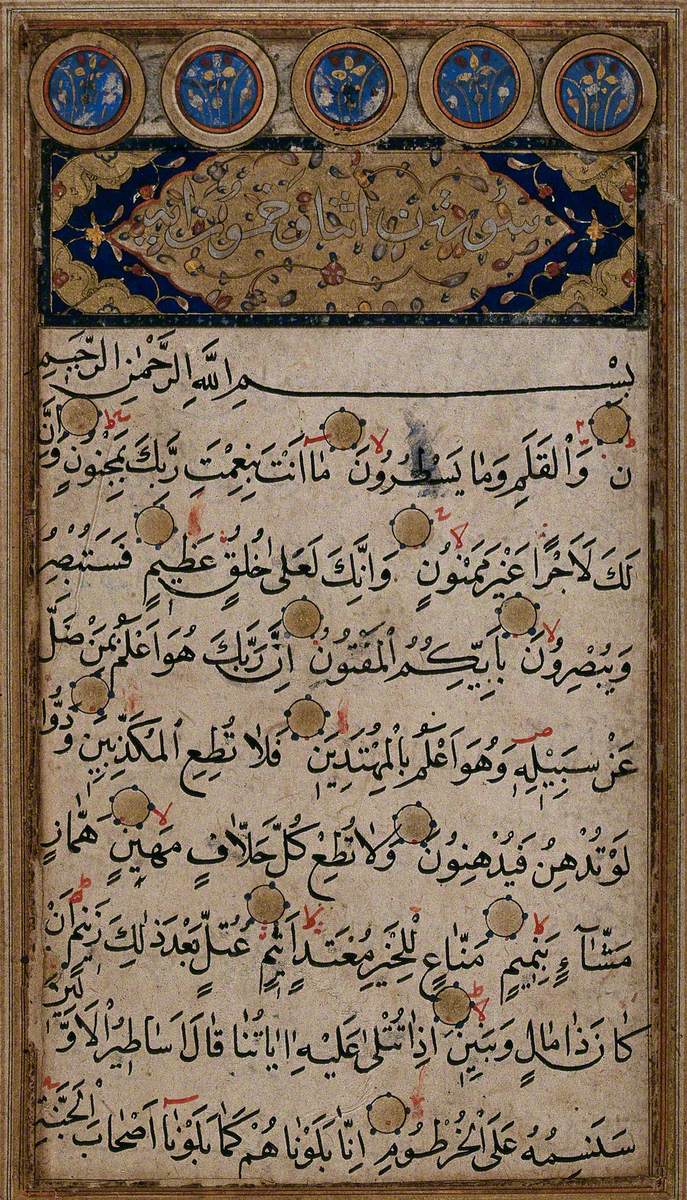 سورة ن اثنان خمسون اية
بِسْمِ اللَّهِ الرَّحْمٰنِ الرَّحِيمِ
ن وَالْقَلَمِ وَمَا يَسْطُرُونَ مَا اَنْتَ بِنِعْمَتِ رَبِّكَ بِمَجْنُونٍ وَاِنَّ
لَكَ لَاَجْرًا غَيْرَ مَمْنُونٍ وَاِنَّكَ لَعَلىٰ خُلُقٍ عَظِيمٍ فَسَتُبْصِرُ
وَيُبْصِرُونَ بِاَيِّكُمُ الْمَفْتُونُ اِنَّ رَبَّكَ هُوَ اَعْلَمُ بِمَنْ ضَلَّ
عَنْ سَبِيلِهِ وَهُوَ اَعْلَمُ بِالْمُهْتَدِينَ فَلَا تُطِعِ الْمُكَذِّبِينَ وَدُّوا
لَوْ تُدْهِنُ فَيُدْهِنُونَ وَلَا تُطِعْ كُلَّ حَلَّافٍ مَهِينٍ هَمَّازٍ
مَشَّاءٍ بِنَمِيمٍ مَنَّاعٍ لِلْخَيْرِ مُعْتَدٍ اَثِيمٍ عُتُلٍّ بَعْدَ ذٰلِكَ زَنِيمٍ اَنْ
كَانَ ذَا مَالٍ وَبَنِينَ اِذَا تُتْلىٰ عَلَيْهِ اٰيَاتُنَا قَالَ اَسَاطِيرُ الْاَوَّلِينَ
سَنَسِمُهُ عَلَى الْخُرْطُومِ اِنَّا بَلَوْنَاهُمْ كَمَا بَلَوْنَا اَصْحَابَ الْجَنَّةِ